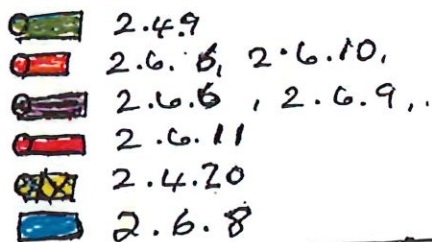 2.4.9
2.6.6, 2.6.10,
2.6.6, 2.6.9,.
2.6.11
2.4.20
2.6.8